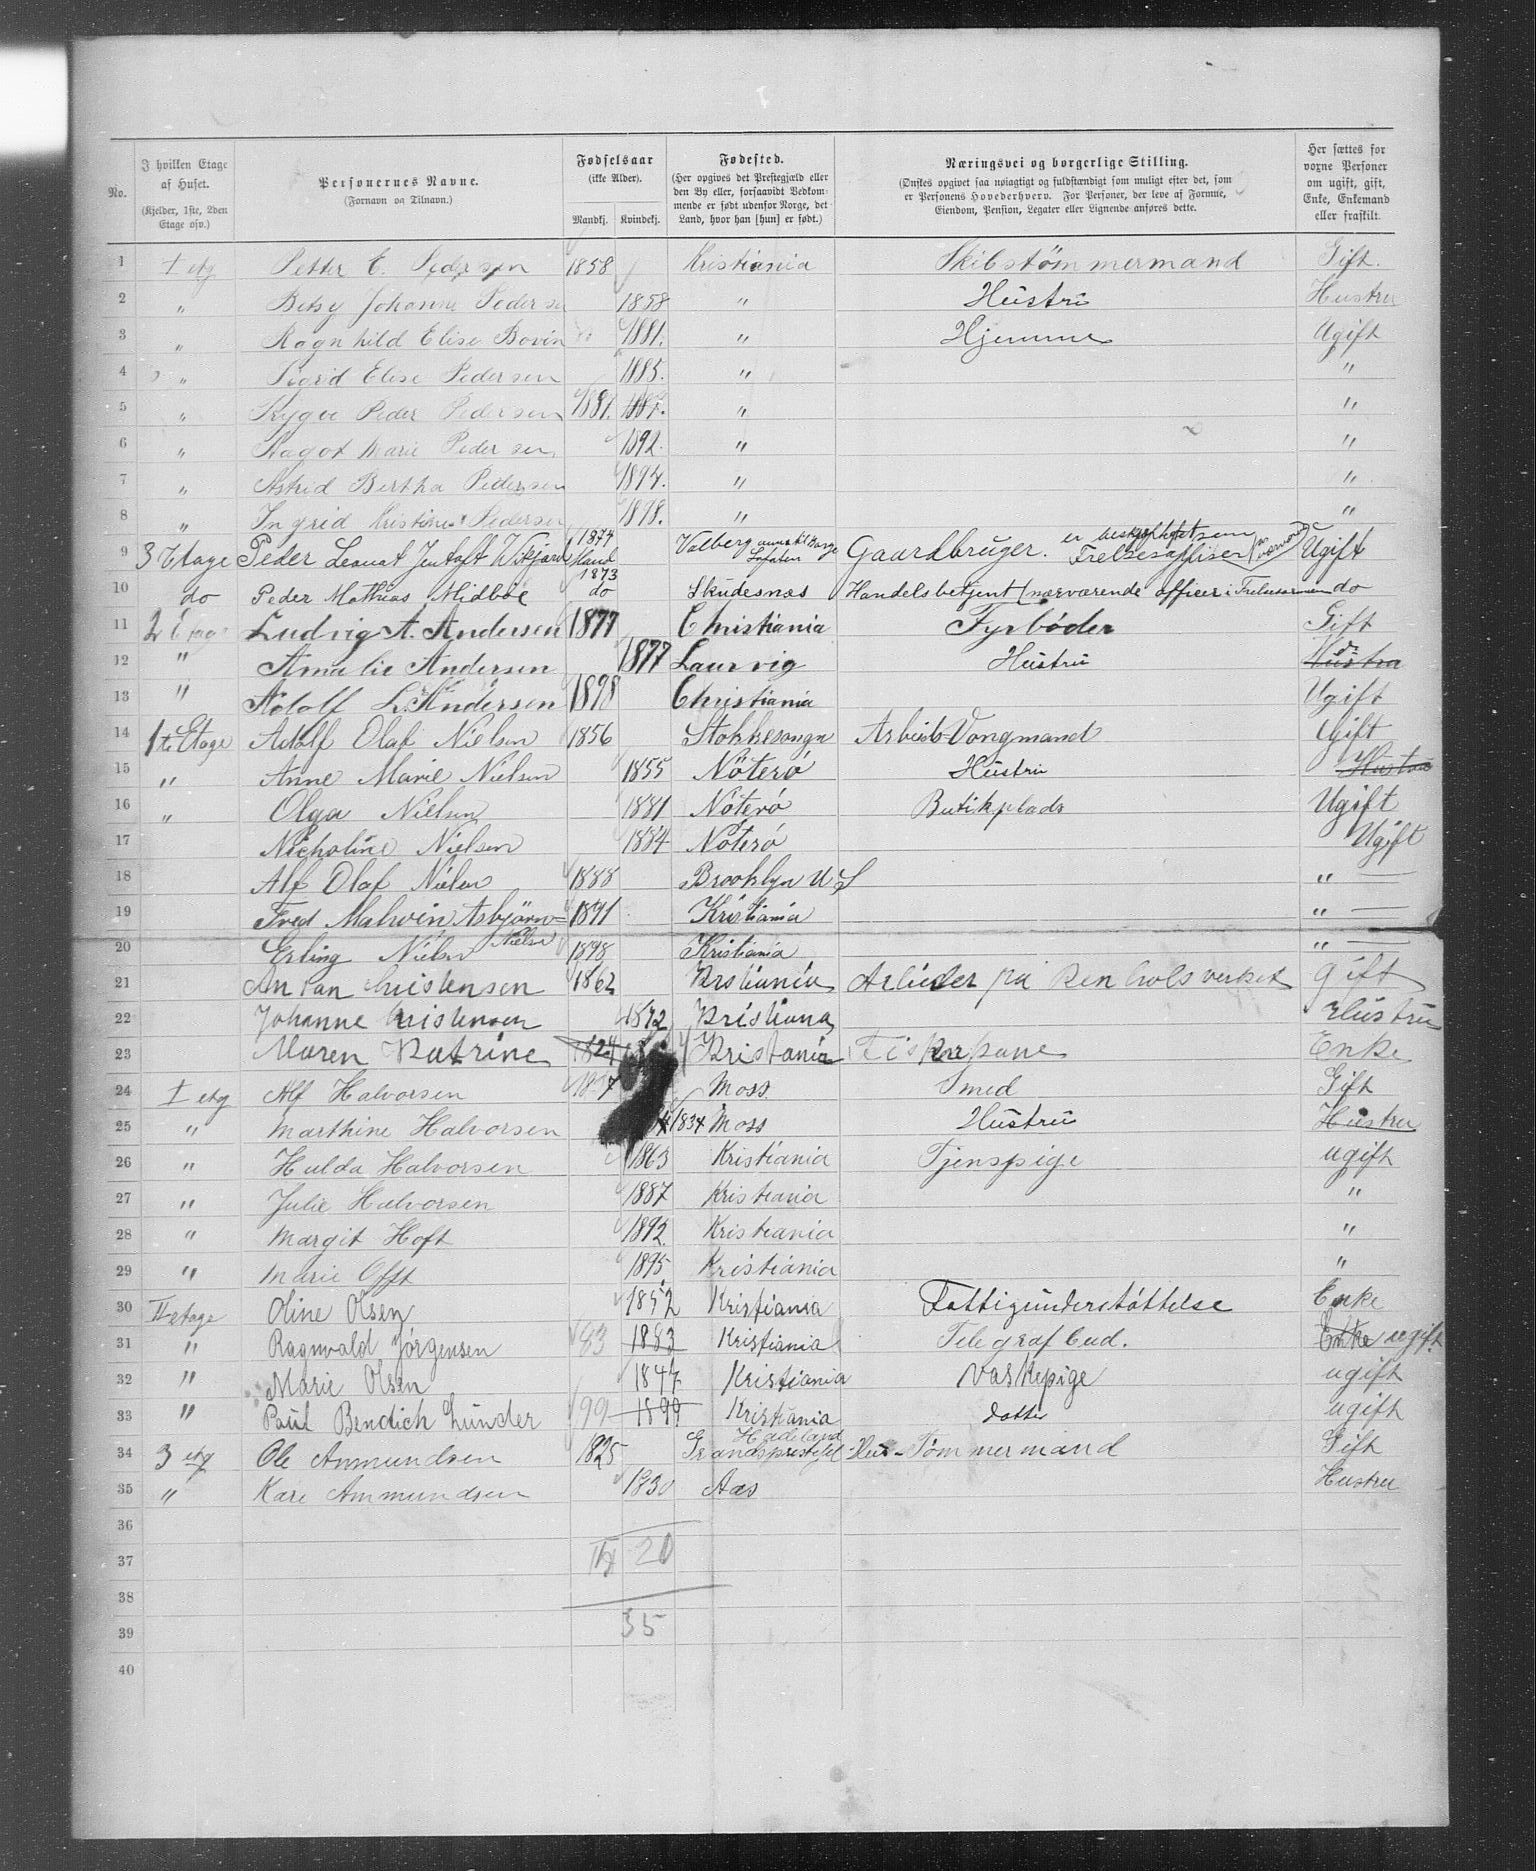 No. | I hvilken Etage af Huset. (Kjelder, 1ste, 2den Etage osv.) | Personernes Navne. (Fornavn og Tilnavn.) | Fødselsaar (ikke Alder). Mandkj. | Kvindekj. | Fødested. (Her opgives det Prestegjæld eller den By eller, forsaavidt Vedkommende er født udenfor Norge, det Land, hvor han [hun] er født.) | Næringsvei og borgerlige Stilling. (Ønskes opgivet saa nøiagtigt og fuldstændigt som muligt efter det, som er Personens Hovederhverv. For Personer, der leve af Formue, Eiendom, Pension, Legater eller Lignende anføres dette. | Her sættes for voxne Personer om ugift, gift, Enke, Enkemand eller fraskilt.
1 I etg Petter E. Pedersen 1858 Kristiania Skibstømmermand Gift.
2 " Betsy Johanne Pedersen 1858 " Hustru Hustru
3 " Ragnhild Elise Bovin 1881. " Hjemme Ugift
4 " Sigrid Elise Pedersen 1885. " "
5 " Trygve Peder Pedersen 1881. 1881. " "
6 " Magot Marie Pedersen 1892. " "
7 " Astrid Bertha Pedersen 1894. " "
8 " Ingrid Kristine Pedersen 1898. " "
9 3 Etage Peder Leonat Jentoft 1874 Mand Valberg Lofoten Gaardbruger. er beskjæftiget som Frelsesofficer Ugift
10 do Peder Mathias Midbøe 1873 do Skudesnæs Handelsbetjent (nærværende officer i Frelsesarmeen do
11 2 Etage Ludvig A. Andersen 1877 Christiania Fyrbøder Gift
12 " Amalie Andersen 1877 Laurvig Hustru Hustru
13 " Adolf L. Andersen 1898 Christiania Ugift
14 1te Etage Adolf Olaf Nielsen 1856 Arbeids Vongmand Gift
15 " Anne Marie Nielsen 1855 Nøterø Hustru Hustru
16 " Olga Nielsen 1881 Nøterø Butikplads Ugift
17 Nicholine Nielsen 1884 Nøterø Ugift
18 Alf Olaf Nielsen 1888 Brooklyn U S " —
19 Fred Malvin Asbjørn= Nielsen 1891 Kristiania " —
20 Erling Nielsen 1898 Kristiania " —
21 Antan Cristensen 1862 Krstiania Arbieder på Renholsverket gift
22 Johanne Cristensen 1872 Kristiana Hustru
23 Maren Katrine 1824 Kristania Fiskepane Enke
24 I etg Alf Halvorsen Moss Smed Gift
25 " Marthine Halvorsen 1834 Moss Hustru Hustru
26 " Hulda Halvorsen 1863 Kristiania Tjenspige ugift
27 " Julie Halvorsen 1887 Kristiania "
28 " Margit Hoft 1892. Kristiania "
29 " Marie Offt 1895 Kristiania "
30 II etage Oline Olsen 1852 Kristiania Fattigunderstøttelse Enke
31 " Ragnvald Jørgensen 83 1883 Kristiania Telegrafbud. Enke ugift
32 " Marie Olsen 1847 Kristiania Vaskepige ugift
33 " Paul Bendich Lunder 99 1899 Kristiania datter ugift
34 3 etg Ole Anmundsen 1825 Hadeland Hus-Tømmermand Gift
35 " Kari Ammundsen 1830 Aas Hustru
36
37 20
38
39 35
40